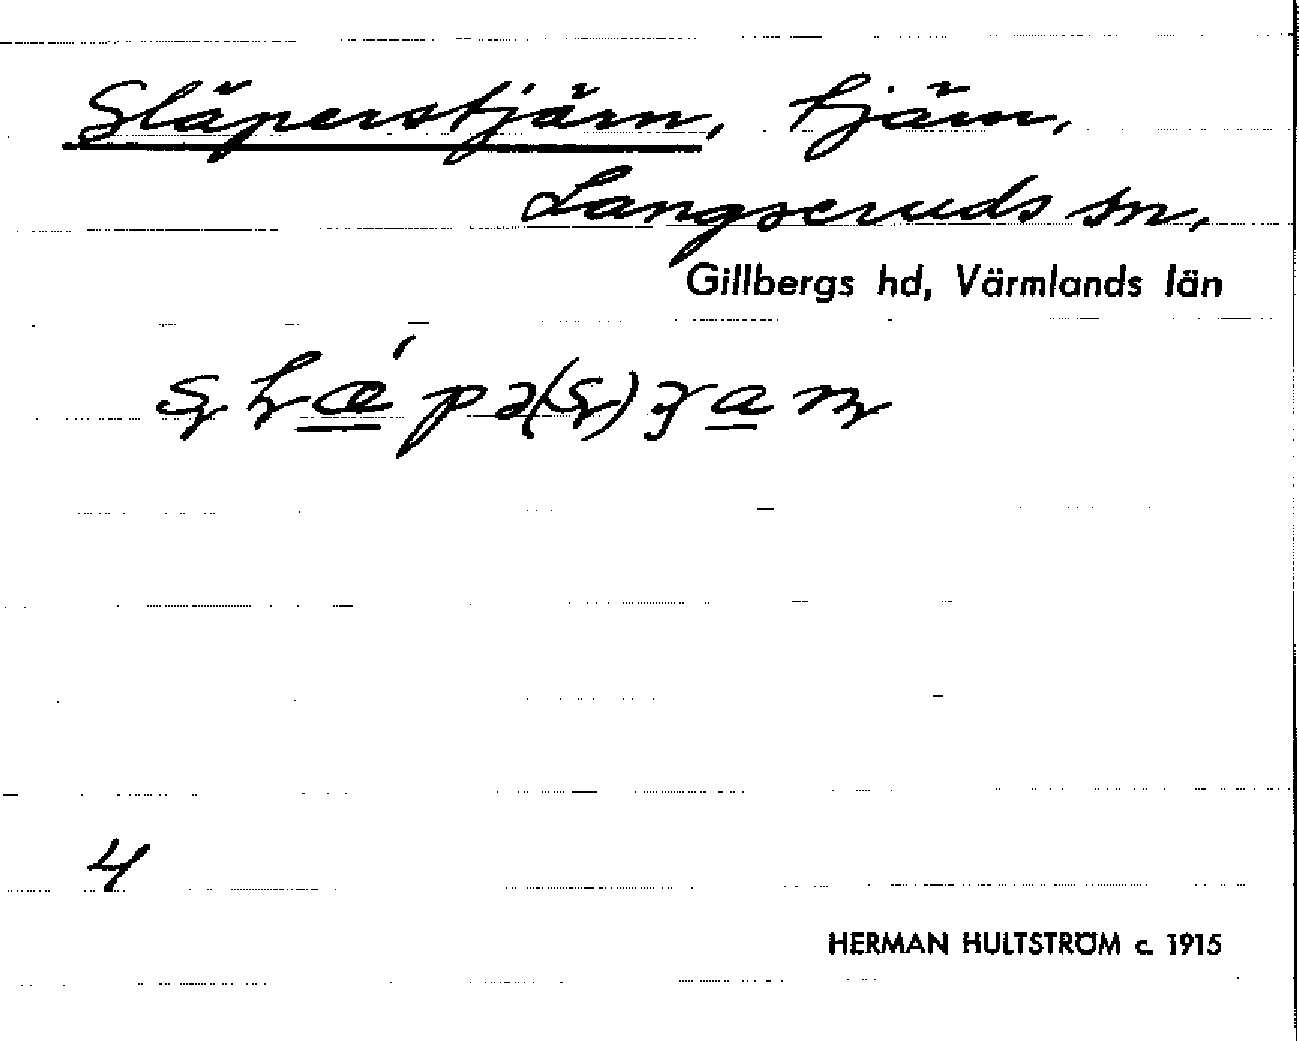 Släperstjärn, tjärn,
Långseruds sn,
Gillbergs hd, Värmlands län
4
HERMAN HULTSTRÖM c. 1915